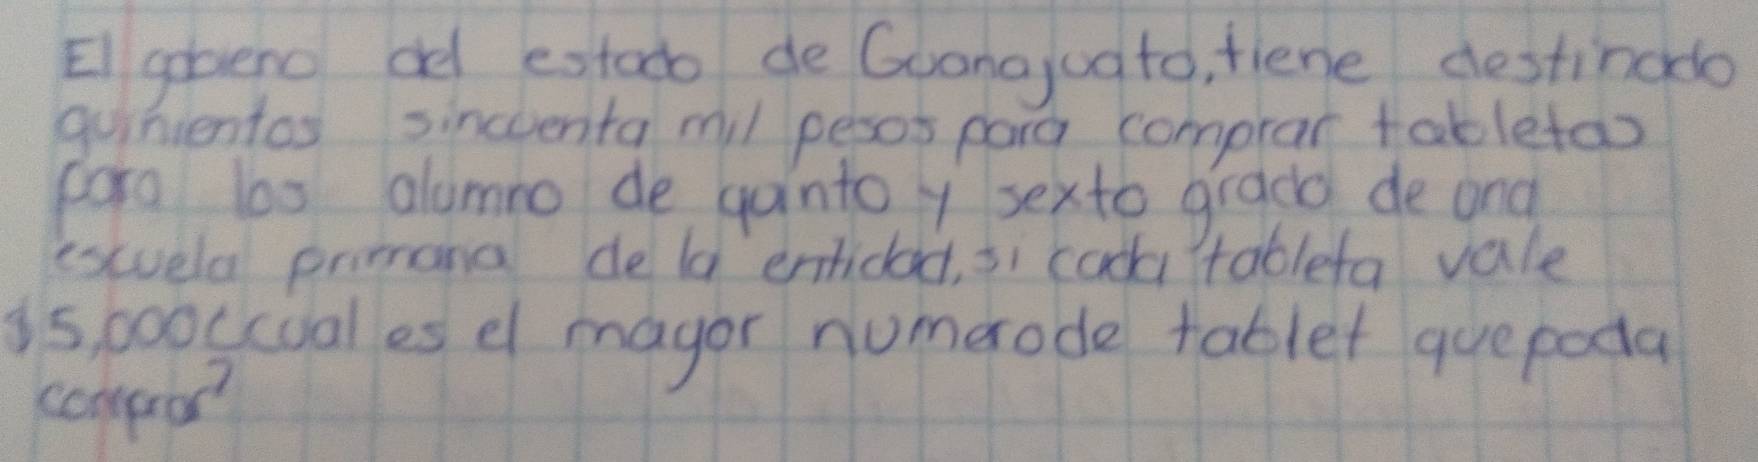 El gobieno del estado de Guanajuato, tiene destinado
quinientos sincuenta mil pesos para comprar tabletas
para los alumno de quinto y sexto grado de una
escuela primaria de la entidad, si cada tableta vale
$5,000 ¿cual es el mayor numero de tablet que poda
comprar?